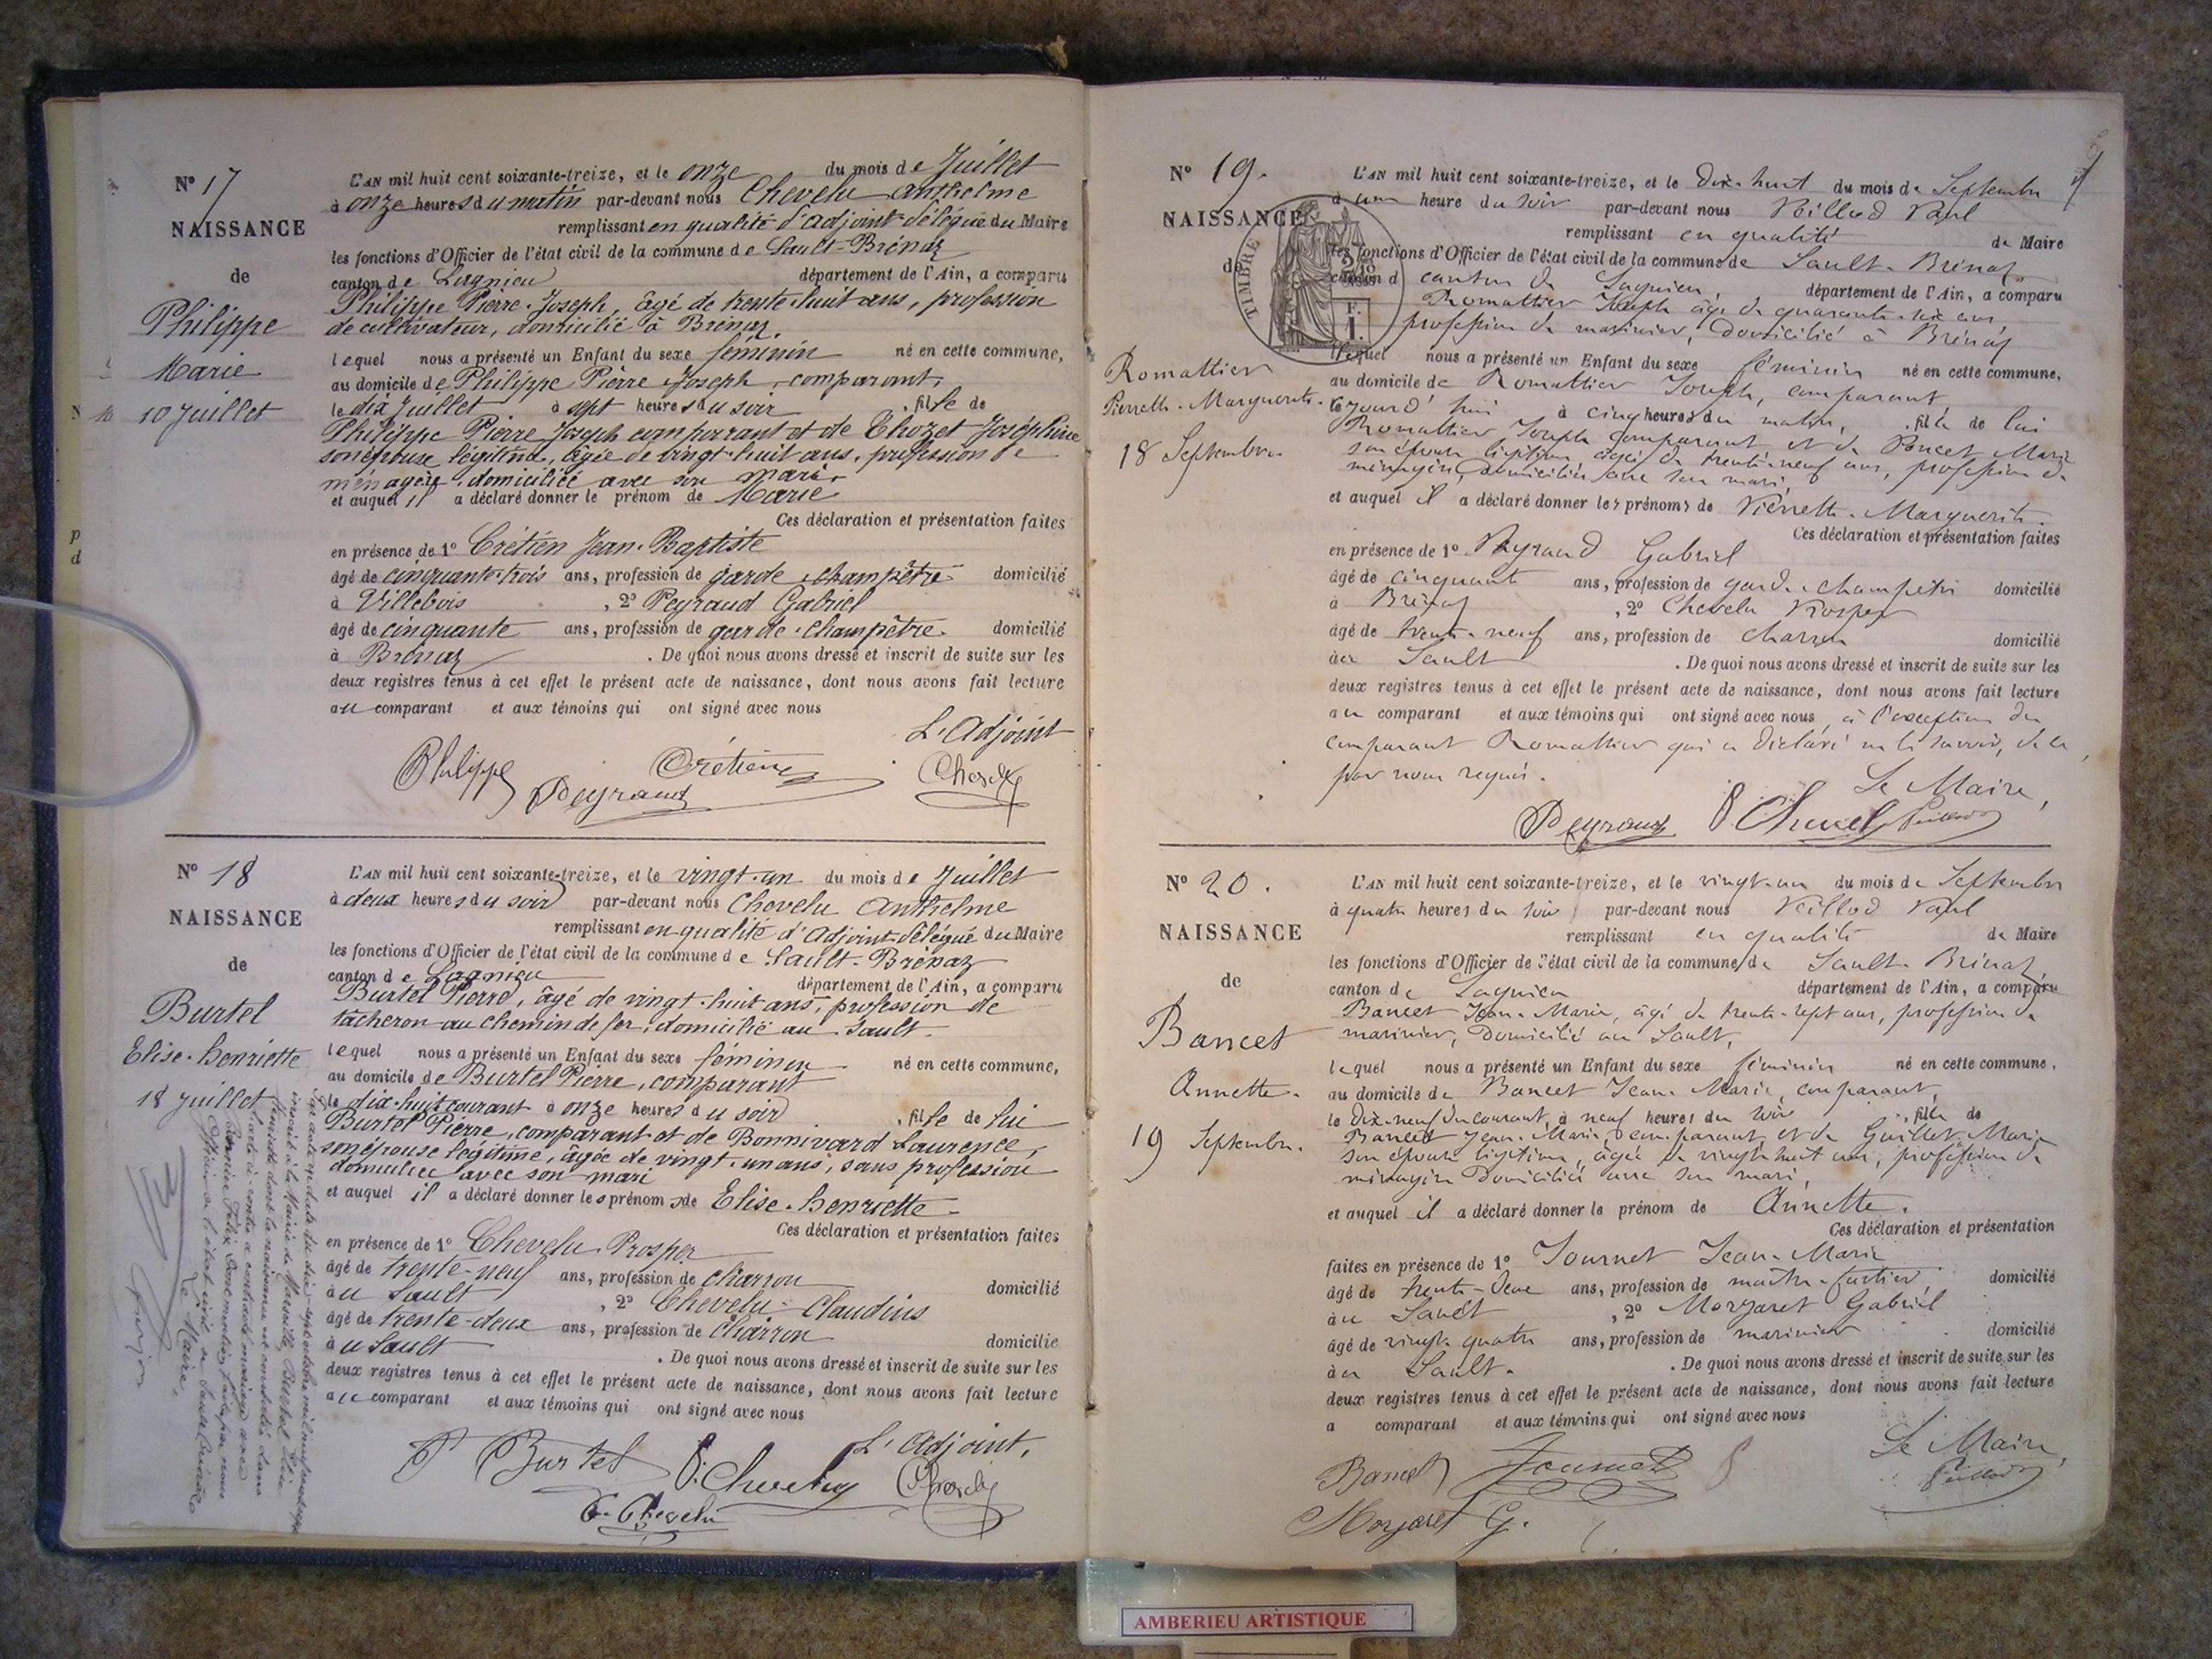 N° 17
NAISSANCE
de
Philippe
Marie
10 Juillet
L'AN mil huit cent soixante-treize, et le onze du mois de Juillet
à onze heures du matin par-devant nous Chevelu Anthelme
remplissant en qualité d'Adjoint délégué du Maire
les fonctions d'Officier de l'état civil de la commune de Sault-Brénaz
canton de Lagnieu département de l'Ain, a comparu
Philippe Pierre-Joseph, âgé de trente-huit ans, profession
de cultivateur, domicilié à Brénaz.
lequel nous a présenté un Enfant du sexe féminin né en cette commune,
au domicile de Philippe Pierre Joseph, comparant,
le dix Juillet à sept heures du soir, fille de
Philippe Pierre Joseph comparant et de Chozet Joséphine
son épouse légitime, âgée de vingt-huit ans, profession de
ménagère, domiciliée avec son mari.
et auquel il a déclaré donner le prénom de Marie
Ces déclaration et présentation faites
en présence de 1° Crétien Jean-Baptiste
âgé de cinquante-trois ans, profession de garde champêtre domicilié
à Villebois, 2° Peyraud Gabriel
âgé de cinquante ans, profession de garde-champêtre domicilié
à Brénaz. De quoi nous avons dressé et inscrit de suite sur les
deux registres tenus à cet effet le présent acte de naissance, dont nous avons fait lecture
au comparant et aux témoins qui ont signé avec nous
L'Adjoint
Philippe Crétien
Peyraud
N° 18
NAISSANCE
de
Burtel
Elise-henriette
18 Juillet
L'AN mil huit cent soixante-treize, et le vingt-un du mois de Juillet
à deux heures du soir par-devant nous Chevelu Anthelme
remplissant en qualité d'Adjoint délégué du Maire
les fonctions d'Officier de l'état civil de la commune de Sault-Brénaz
canton de Lagnieu département de l'Ain, a comparu
Burtel Pierre, âgé de vingt-huit ans, profession de
tâcheron au chemin de fer, domicilié au Sault.
lequel nous a présenté un Enfant du sexe féminin né en cette commune,
au domicile de Burtel Pierre, comparant
le dix-huit courant à onze heures du soir, fille de lui
Burtel Pierre, comparant et de Bonnivard Laurence,
son épouse légitime, âgée de vingt-un ans, sans profession
domiciliée avec son mari
et auquel il a déclaré donner les prénoms de Elise-henriette
Ces déclaration et présentation faites
en présence de 1° Chevelu Prosper
âgé de trente-neuf ans, profession de charron domicilié
au Sault, 2° Chevelu Claudius
âgé de trente-deux ans, profession de charron domicilié
au Sault. De quoi nous avons dressé et inscrit de suite sur les
deux registres tenus à cet effet le présent acte de naissance, dont nous avons fait lecture
au comparant et aux témoins qui ont signé avec nous
L'Adjoint,
P Burtel P. Chevelu
C. Chevelu
Le Maire,
N° 19.
NAISSANCE
de
Romattier
Pierrette-Marguerite
18 Septembre
TIMBRE
L'AN mil huit cent soixante-treize, et le dix-huit du mois de Septembre
à une heure du soir par-devant nous
remplissant en qualité de Maire
les fonctions d'Officier de l'état civil de la commune de Sault-Brénaz
canton d canton de Lagnieu, département de l'Ain, a comparu
Romattier Joseph âgé de quarante-six ans,
profession de marinier, domicilié à Brénaz
lequel nous a présenté un Enfant du sexe féminin né en cette commune,
au domicile de Romattier Joseph, comparant,
cejourd'hui à cinq heures du matin, fille de lui
Romattier Joseph comparant et de Poncet Marie
son épouse légitime âgée de trente-neuf ans, profession de
ménagère, domiciliée avec son mari,
et auquel il a déclaré donner les prénoms de Pierrette-Marguerite.
Ces déclaration et présentation faites
en présence de 1° Peyraud Gabriel
âgé de cinquante ans, profession de garde-champêtre domicilié
à Brénaz, 2° Chevelu Prosper
âgé de trente-neuf ans, profession de charron domicilié
au Sault. De quoi nous avons dressé et inscrit de suite sur les
deux registres tenus à cet effet le présent acte de naissance, dont nous avons fait lecture
au comparant et aux témoins qui ont signé avec nous, à l'exception du
comparant Romattier qui a déclaré ne le savoir, de ce
par nous requis.
Le Maire,
Peyraud
N° 20.
NAISSANCE
de
Bancet
Annette.
19 Septembre.
L'AN mil huit cent soixante-treize, et le vingt-un du mois de Septembre
à quatre heures du soir par-devant nous
remplissant en qualité de Maire
les fonctions d'Officier de l'état civil de la commune de Sault-Brénaz,
canton de Lagnieu département de l'Ain, a comparu
Bancet Jean-Marie, âgé de trente-sept ans, profession de
marinier, domicilié au Sault,
lequel nous a présenté un Enfant du sexe féminin né en cette commune,
au domicile de Bancet Jean-Marie, comparant,
le dix-neuf du courant, à neuf heures du soir, fille de
Bancet Jean-Marie, comparant et de Guillet Marie
son épouse légitime, âgée de vingt-huit ans, profession de
ménagère domiciliée avec son mari,
et auquel il a déclaré donner le prénom de Annette.
Ces déclaration et présentation
faites en présence de 1° Journet Jean-Marie
âgé de trente-deux ans, profession de domicilié
au Sault, 2° Morgaret Gabriel
âgé de vingt-quatre ans, profession de marinier domicilié
au Sault. De quoi nous avons dressé et inscrit de suite sur les
deux registres tenus à cet effet le présent acte de naissance, dont nous avons fait lecture
a comparant et aux témoins qui ont signé avec nous
Le Maire,
Bancet Journet
Morgaret G.
AMBERIEU ARTISTIQUE